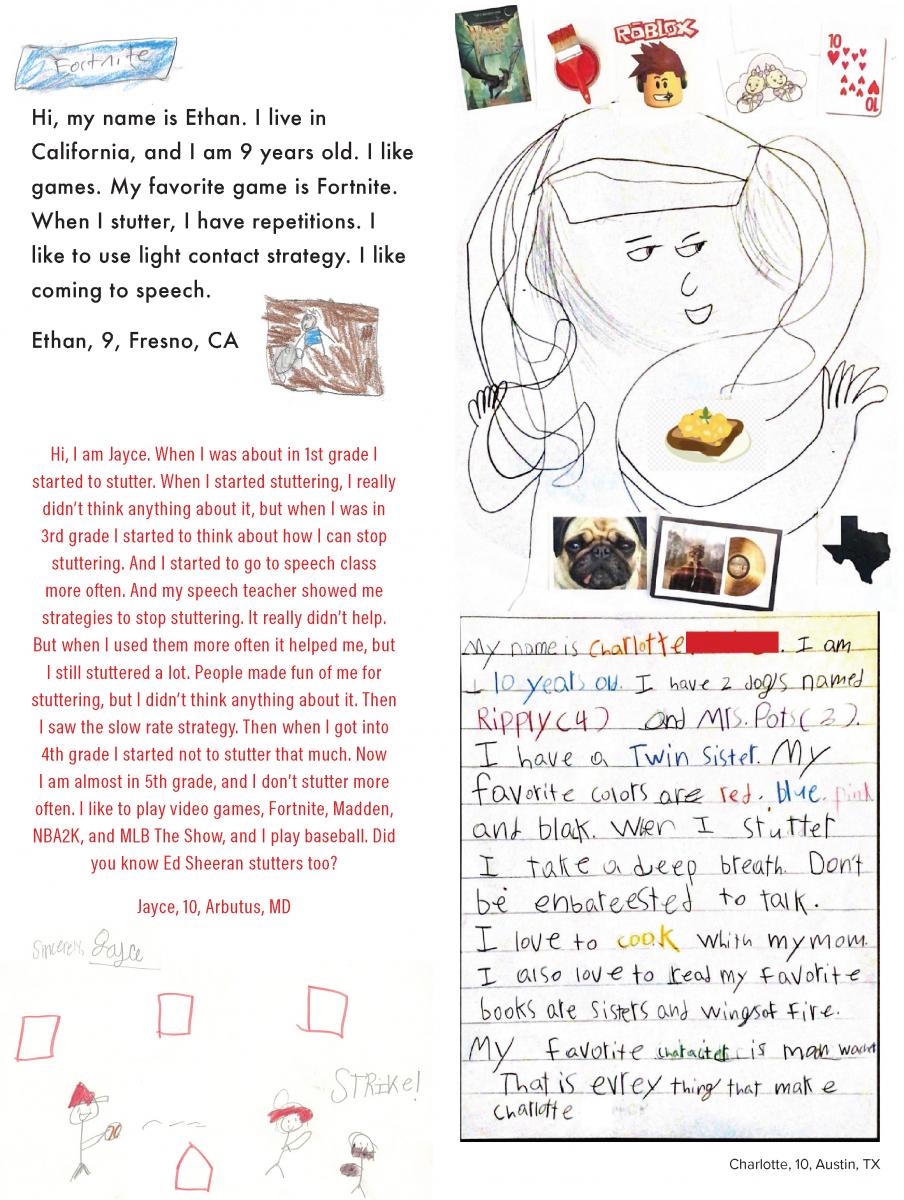 Fortnite
Hi, my name is Ethan. I live in
California, and I am 9 years old. I like
games. My favorite game is Fortnite.
When I stutter, I have repetitions. I
like to use light contact strategy. I like
coming to speech.
Ethan, 9, Fresno, CA
Hi, I am Jayce. When I was about in 1st grade I
started to stutter. When I started stuttering, I really
didn’t think anything about it, but when I was in
3rd grade I started to think about how I can stop
stuttering. And I started to go to speech class
more often. And my speech teacher showed me
strategies to stop stuttering. It really didn’t help.
But when I used them more often it helped me, but
I still stuttered a lot. People made fun of me for
stuttering, but I didn’t think anything about it. Then
I saw the slow rate strategy. Then when I got into
4th grade I started not to stutter that much. Now
I am almost in 5th grade, and I don’t stutter more
often. I like to play video games, Fortnite, Madden,
NBA2K, and MLB The Show, and I play baseball. Did
you know Ed Sheeran stutters too?
Jayce, 10, Arbutus, MD
Sincerely, Jayce
STRike!
ROBLOX
10
10
My name is Charlotte . I am
10 years old. I have 2 dogs named
Ripply (4) and Mrs. Pots (3).
I have a Twin Sister. My
favorite colors are red. blue. pink
and black. When I stutter
I take a deep breath. Don't
be enbareested to talk.
I love to cook whith my mom.
I also love to read my favorite
books are sisters and wings of fire.
My favorite character is moon
That is evrey thing that make
charlotte
Charlotte, 10, Austin, TX